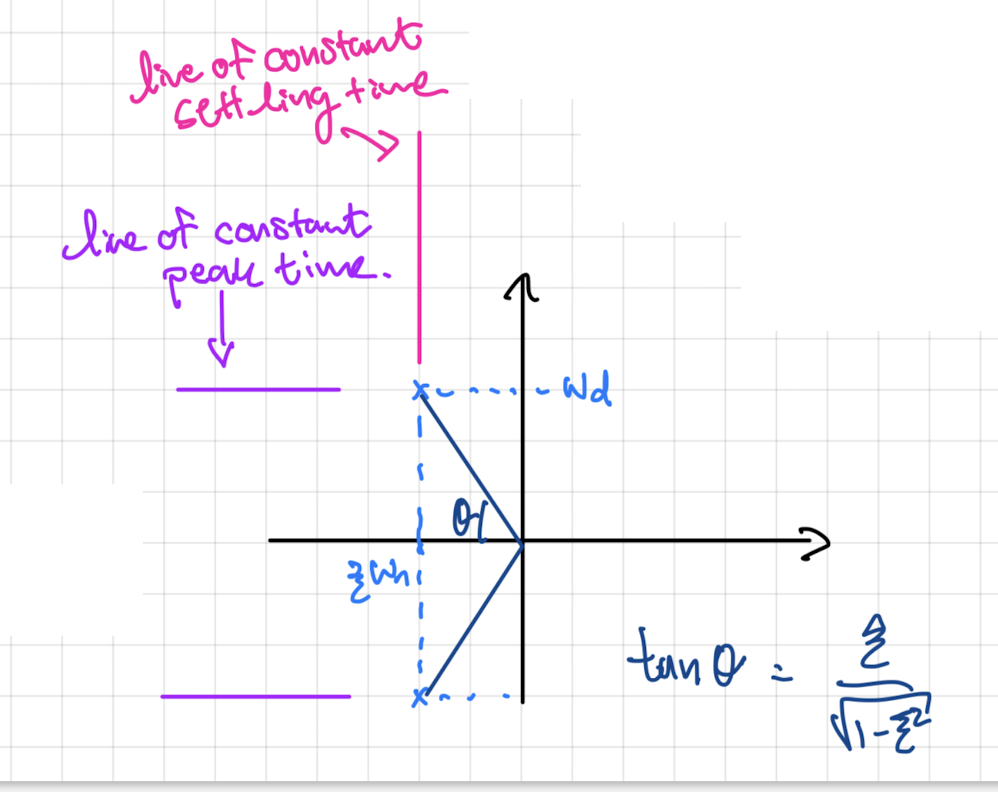 line of constant
settling time
line of constant
peak time.
x
Wd
θ
ξWn
x
tan θ = ξ / √1-ξ²